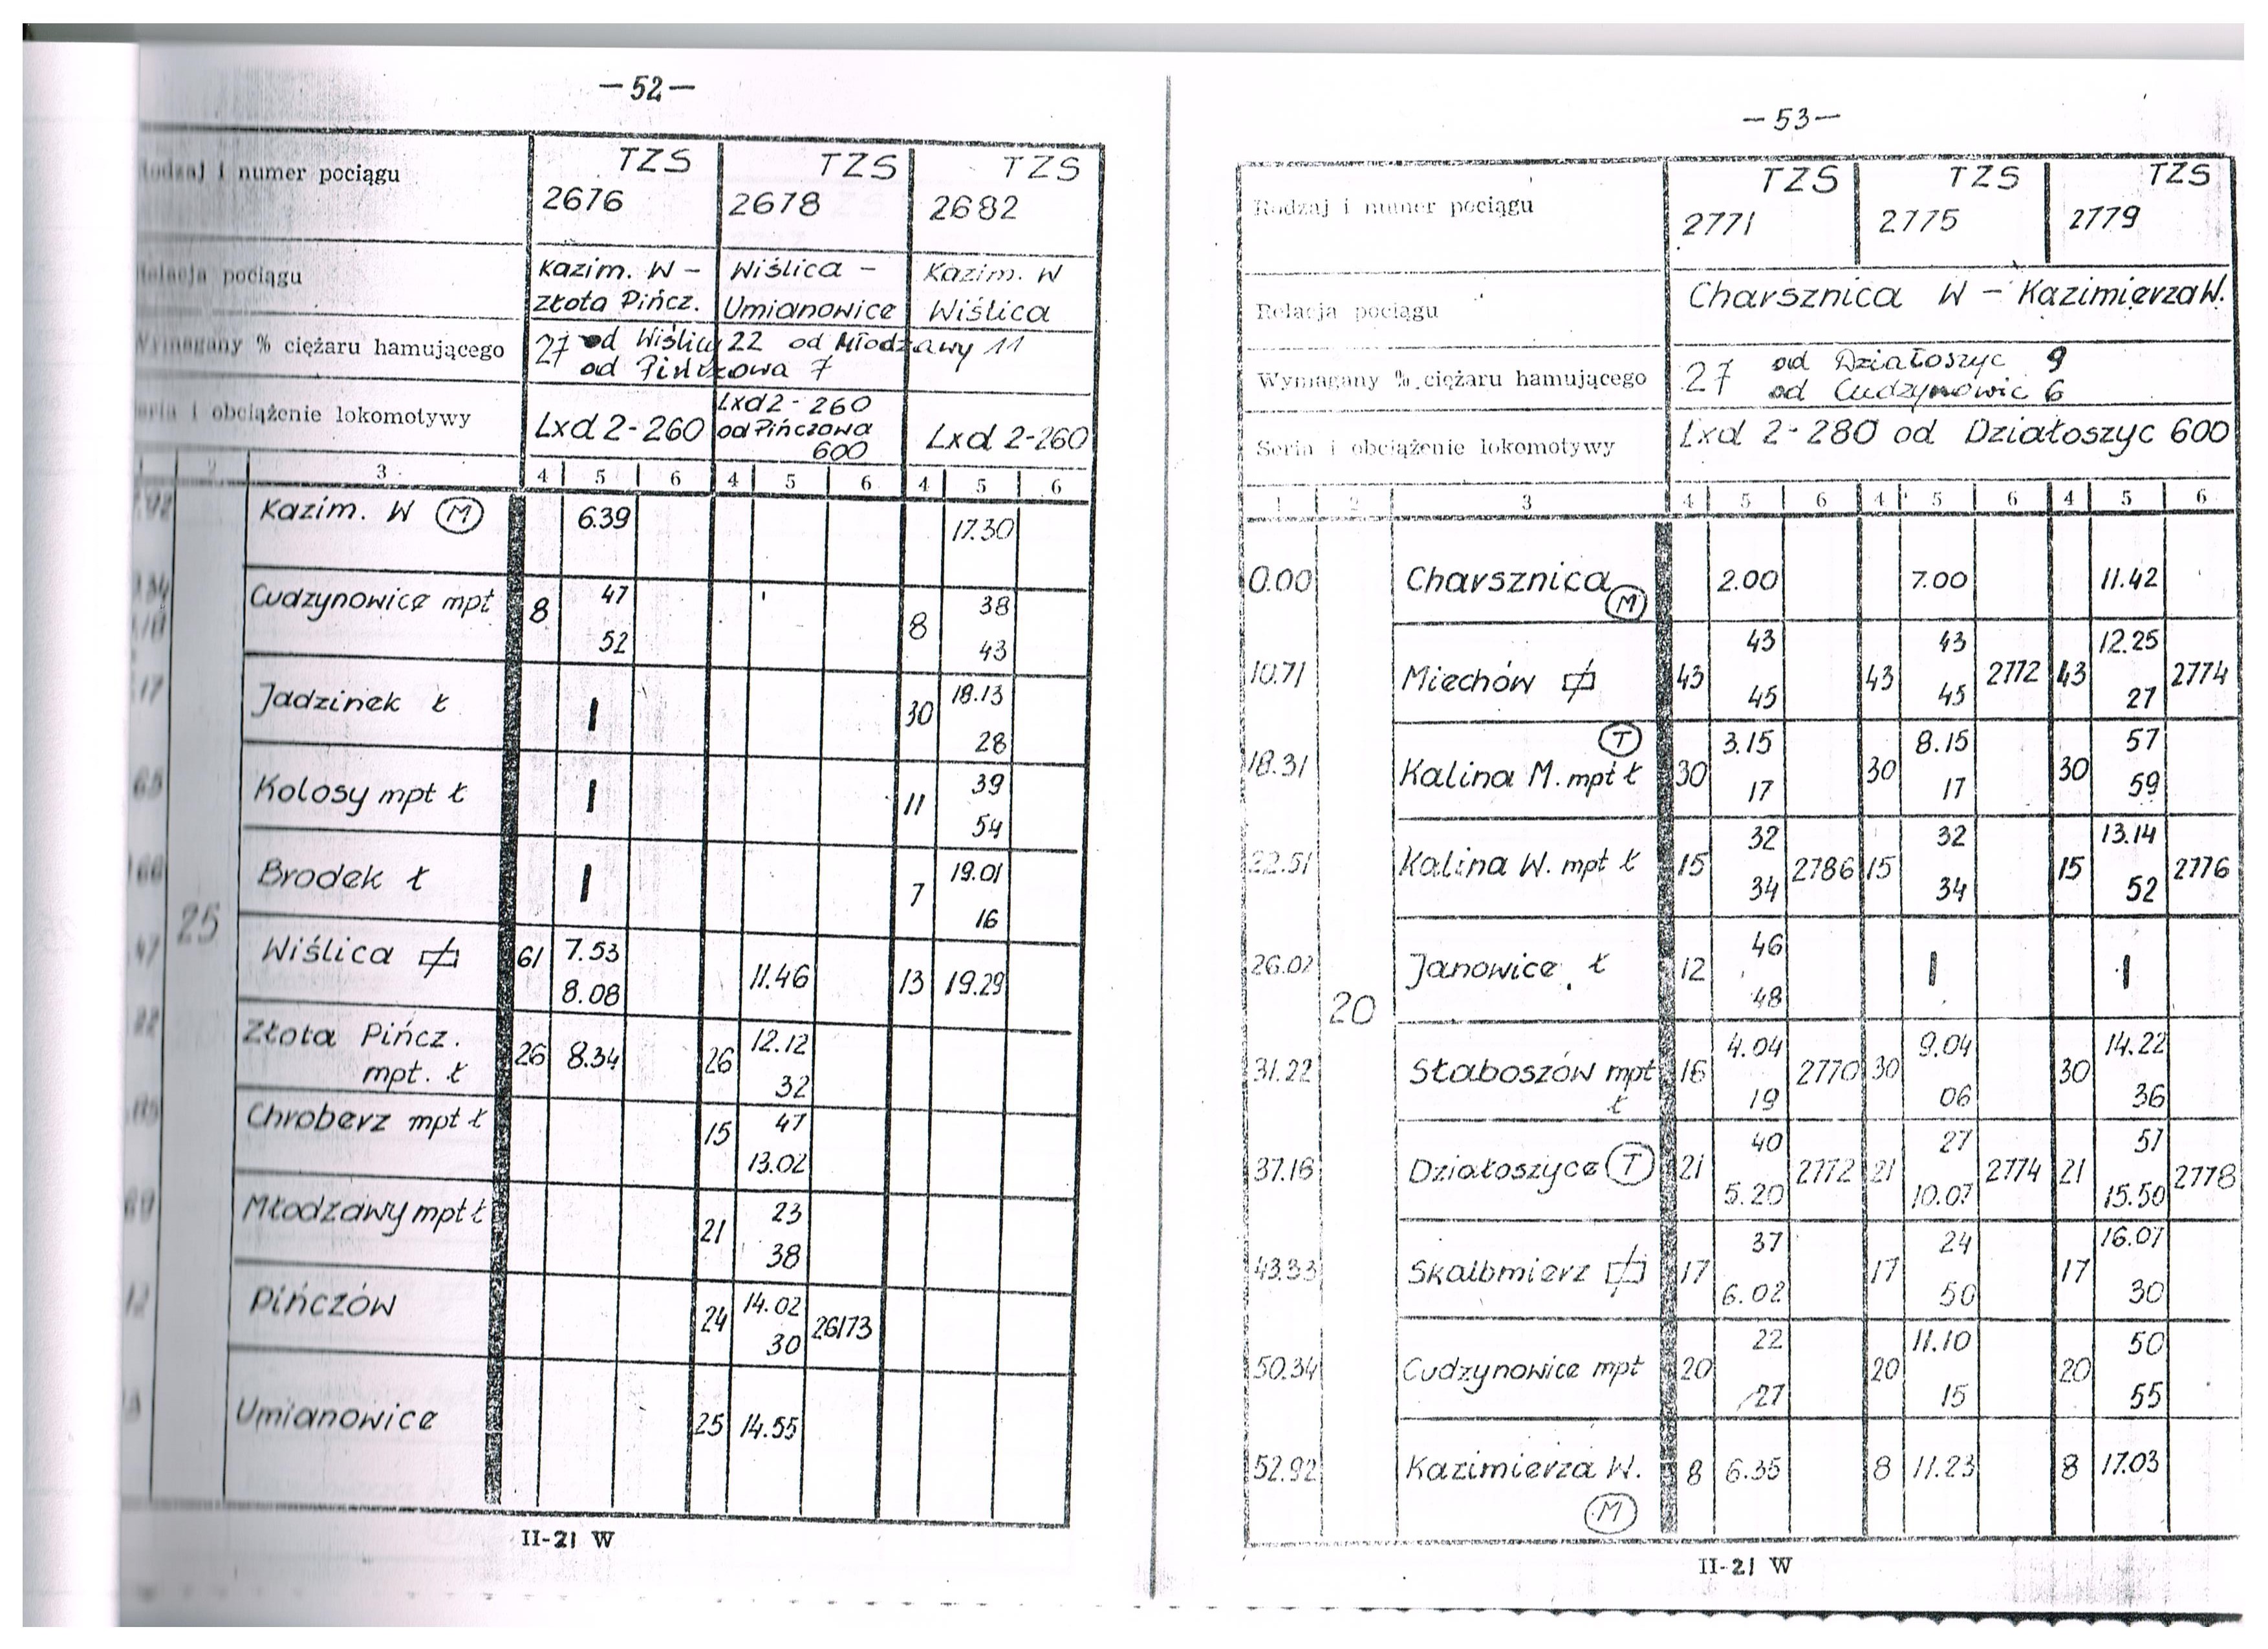 —52—
numer pociągu TZS TZS TZS
2676 2678 2682
pociągu Kazim. W – Wiślica – Kazim. W
Złota Pińcz. Umianowice Wiślica
% ciężaru hamującego 27 od Wiślicy 22 od Młodzawy 11
od Pińczowa 7
i obciążenie lokomotywy Lxd 2-260 Lxd2-260 od Pińczowa 600 Lxd 2-260
2 3 4 5 6 4 5 6 4 5 6
Kazim. W (M) 6.39 17.30
Cudzynowice mpt 8 47 8 38
52 43
Jadzinek ł | 30 18.13
28
Kolosy mpt ł | 11 39
54
Brodek ł | 7 19.01
16
25
Wiślica 61 7.53 11.46 13 19.29
8.08
Złota Pińcz. mpt. ł 26 8.34 26 12.12
32
Chroberz mpt ł 15 47
13.02
Młodzawy mpt ł 21 23
38
Pińczów 24 14.02 26173
30
Umianowice 25 14.55
II-21 W
—53—
Rodzaj i numer pociągu TZS TZS TZS
2771 2775 2779
Relacja pociągu Charsznica W – Kazimierza W.
Wymagany % ciężaru hamującego 27 od Działoszyc 9
od Cudzynowic 6
Seria i obciążenie lokomotywy Lxd 2-280 od Działoszyc 600
1 2 3 4 5 6 4 5 6 4 5 6
0.00 Charsznica (M) 2.00 7.00 11.42
10.71 Miechów 43 43 43 43 2772 43 12.25 2774
45 45 27
18.31 Kalina M. mpt ł (T) 30 3.15 30 8.15 30 57
17 17 59
22.51 Kalina W. mpt ł 15 32 2786 15 32 15 13.14 2776
34 34 52
26.02 Janowice ł 12 46 | |
48
20
31.22 Słaboszów mpt ł 16 4.04 2770 30 9.04 30 14.22
19 06 36
37.16 Działoszyce (T) 21 40 2772 21 27 2774 21 57 2778
5.20 10.07 15.50
43.33 Skalbmierz 17 37 17 24 17 16.07
6.02 50 30
50.34 Cudzynowice mpt 20 22 20 11.10 20 50
27 15 55
52.92 Kazimierza W. (M) 8 6.35 8 11.23 8 17.03
II-21 W